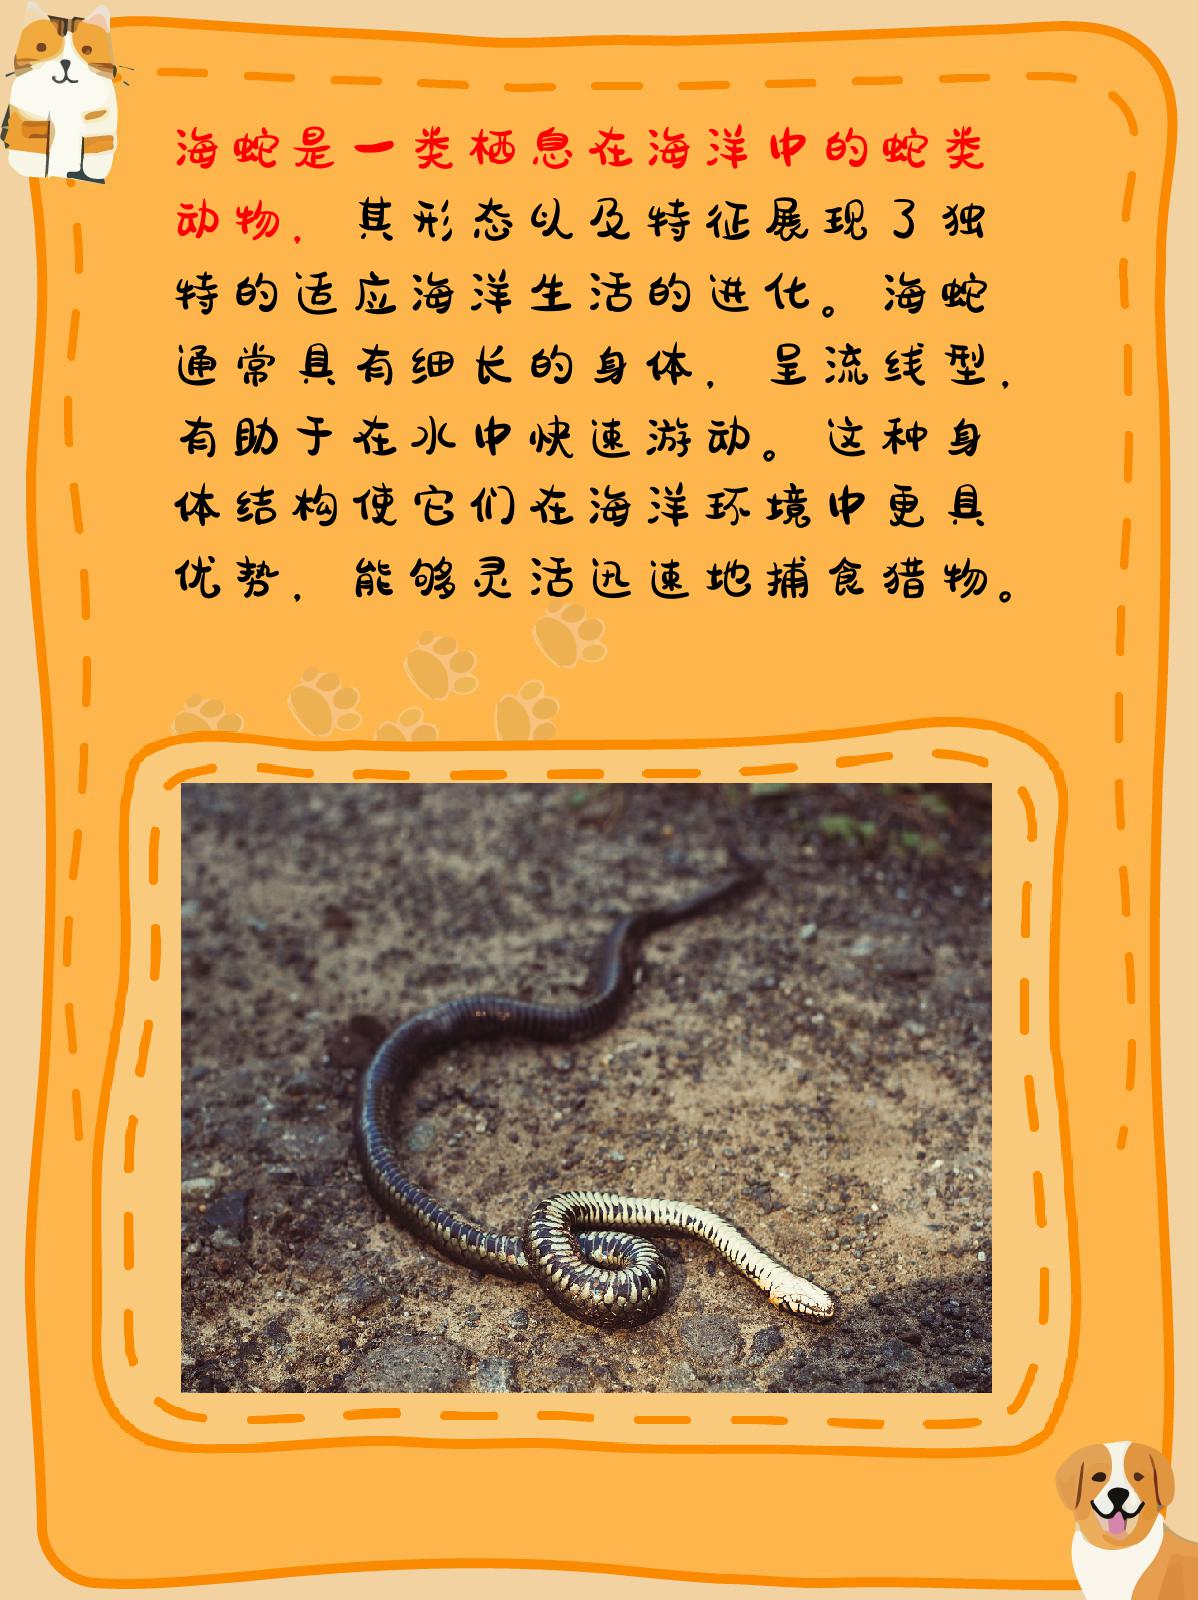 海蛇是一类栖息在海洋中的蛇类
动物，其形态以及特征展现了独
特的适应海洋生活的进化。海蛇
通常具有细长的身体，呈流线型，
有助于在水中快速游动。这种身
体结构使它们在海洋环境中更具
优势，能够灵活迅速地捕食猎物。